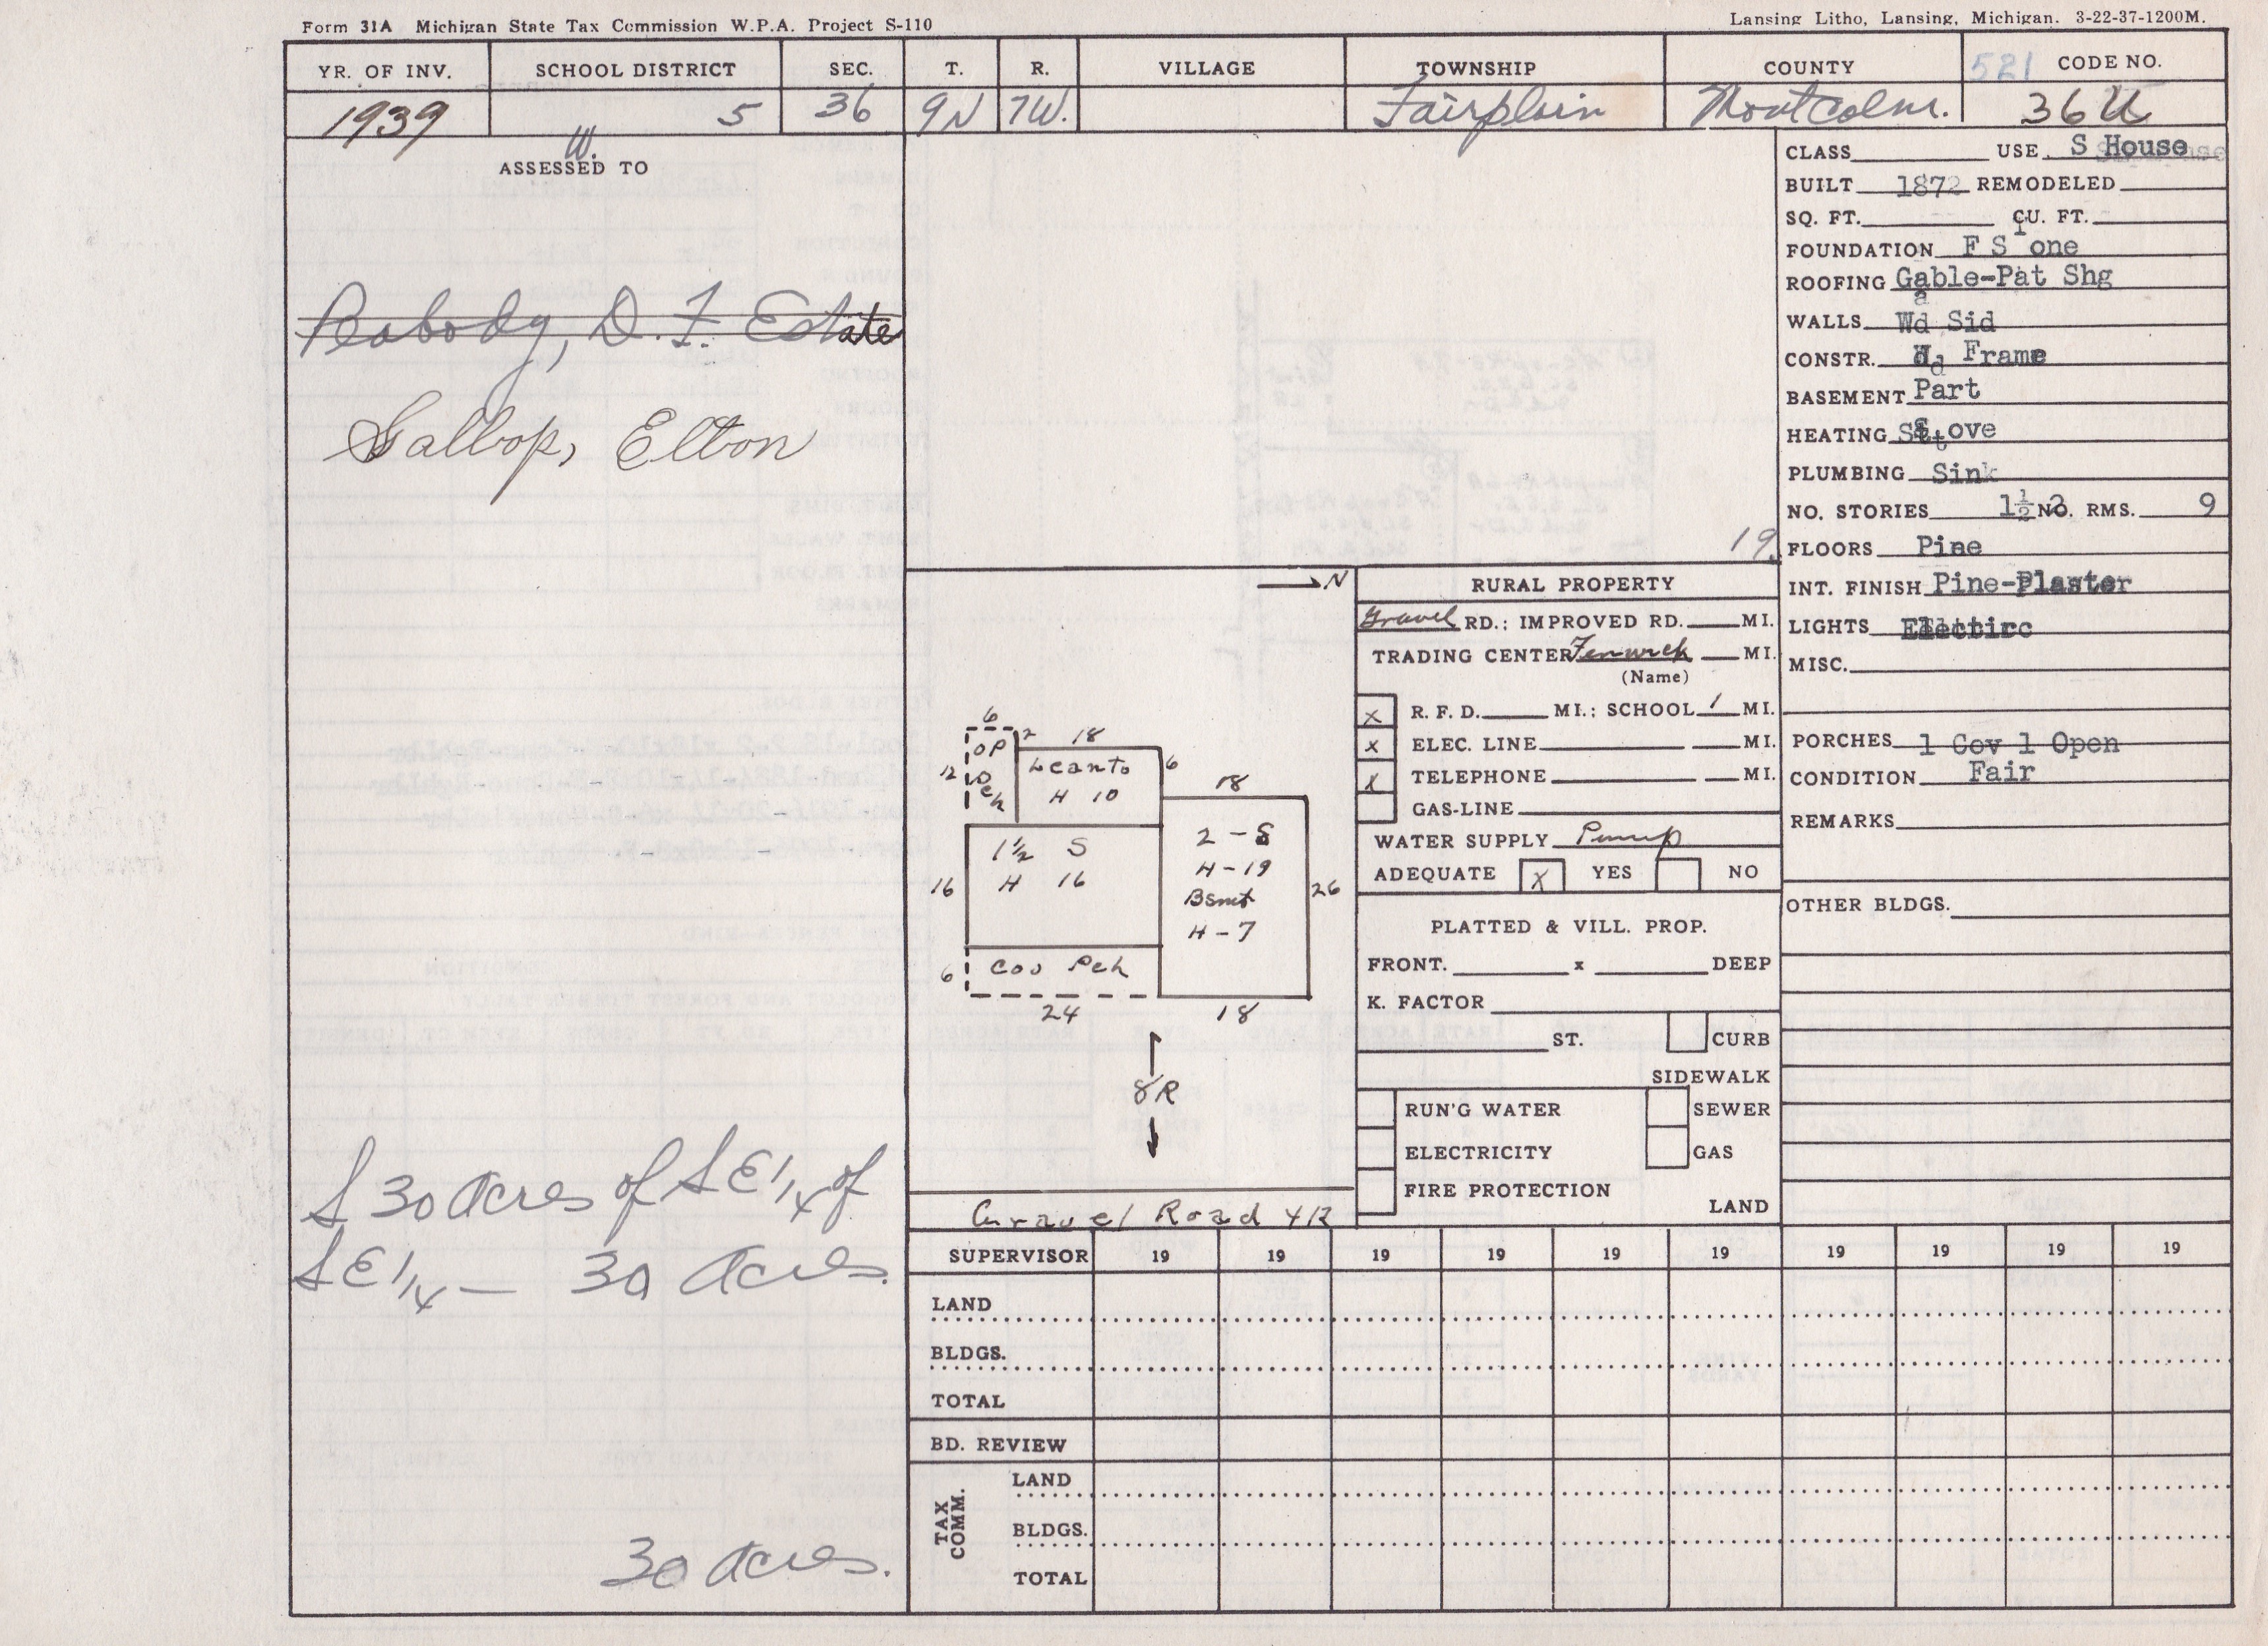 Form 31A Michigan State Tax Commission W.P.A. Project S-110
Lansing Litho, Lansing, Michigan. 3-22-37-1200M.
YR. OF INV. SCHOOL DISTRICT SEC. T. R. VILLAGE TOWNSHIP COUNTY 521 CODE NO.
1939 5 36 9N 7W. Fairplain Montcalm. 36U
W.
ASSESSED TO
Peabody, D. F. Estate
Gallop, Elton
S 30 Acres of SE 1/4 of
SE 1/4 — 30 Acres.
30 Acres.
19
N
6
OP Pch
2
18
12
Leanto
H 10
6
18
1½ S
H 16
16
2 - S
H - 19
Bsmt
H - 7
26
6
Cov Pch
24
18
8R
Gravel Road 4R
RURAL PROPERTY
Gravel RD.: IMPROVED RD. MI.
TRADING CENTER Fenwick MI.
(Name)
x R. F. D. MI.: SCHOOL 1 MI.
x ELEC. LINE MI.
x TELEPHONE MI.
GAS-LINE
WATER SUPPLY Pump
ADEQUATE X YES NO
PLATTED & VILL. PROP.
FRONT. x DEEP
K. FACTOR
ST. CURB
SIDEWALK
RUN'G WATER SEWER
ELECTRICITY GAS
FIRE PROTECTION
LAND
CLASS USE S House
BUILT 1872 REMODELED
SQ. FT. CU. FT.
FOUNDATION F S one
ROOFING Gable-Pat Shg
WALLS Wd Sid
CONSTR. Wd Frame
BASEMENT Part
HEATING Stove
PLUMBING Sink
NO. STORIES 1½ 2 NO. RMS. 9
FLOORS Pine
INT. FINISH Pine-Plaster
LIGHTS Electirc
MISC.
PORCHES 1 Cov 1 Open
CONDITION Fair
REMARKS
OTHER BLDGS.
SUPERVISOR 19 19 19 19 19 19 19 19 19 19
LAND
BLDGS.
TOTAL
BD. REVIEW
TAX COMM.
LAND
BLDGS.
TOTAL